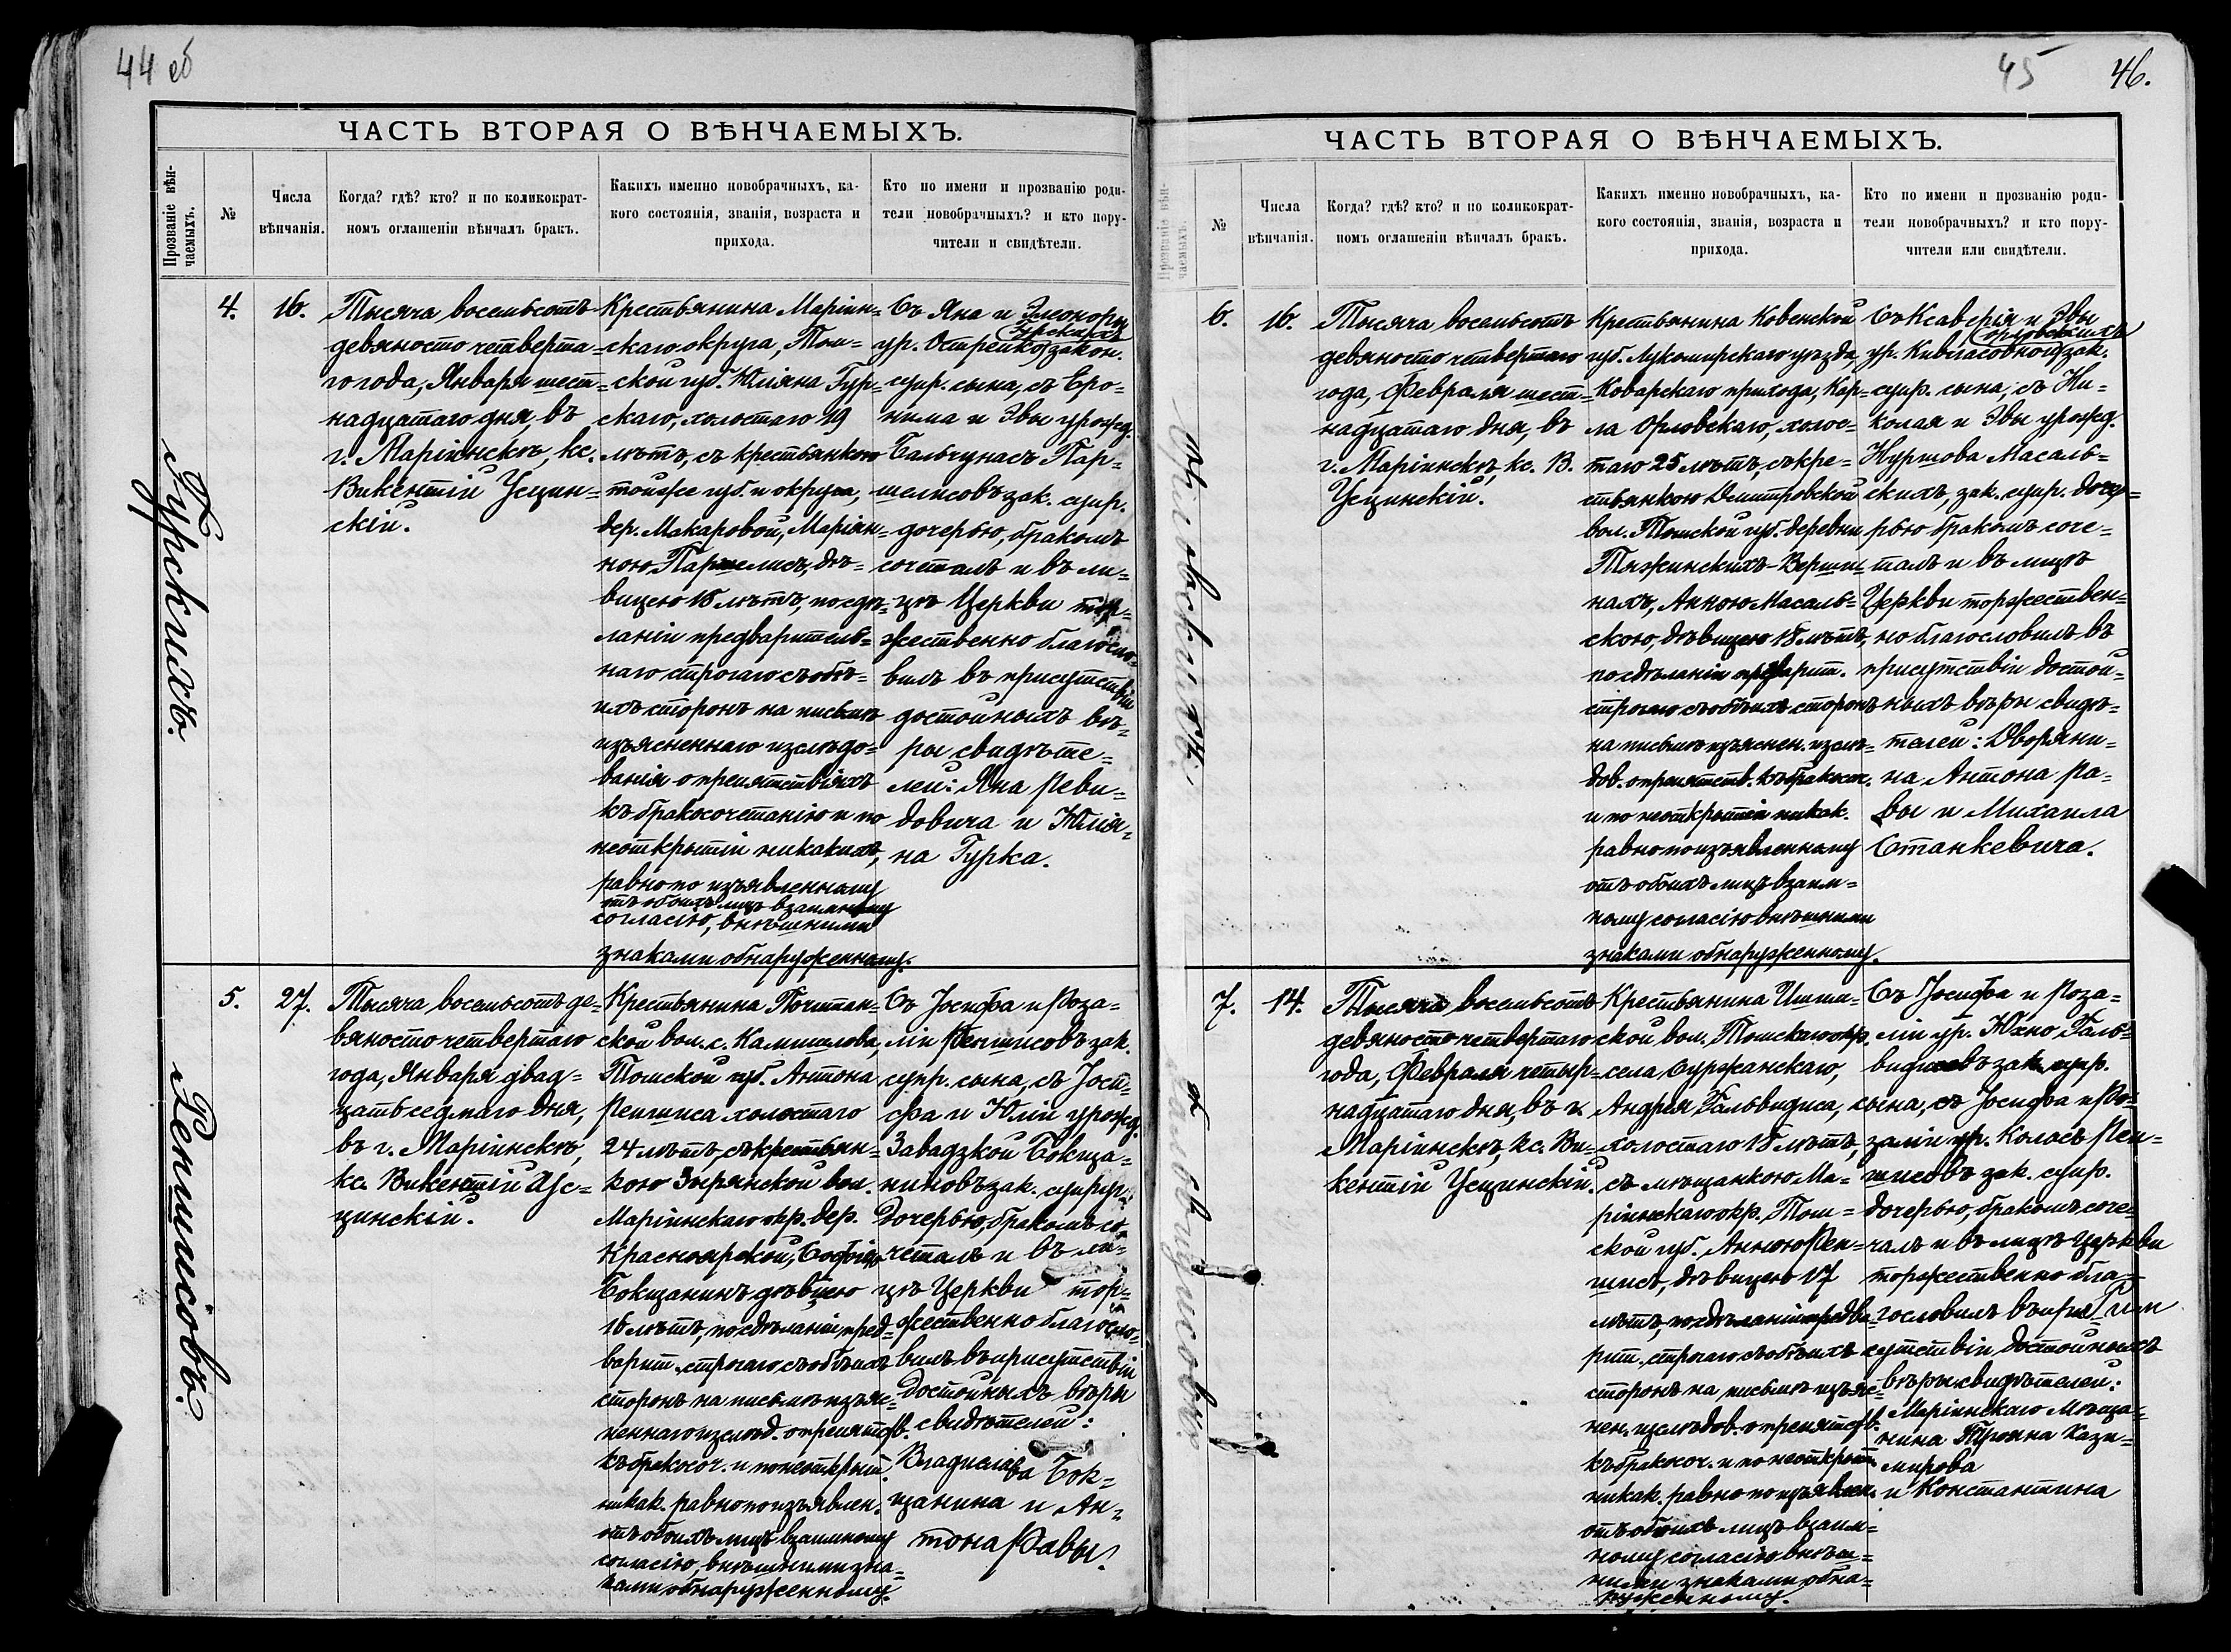 44 об
ЧАСТЬ ВТОРАЯ О ВѢНЧАЕМЫХЪ.
Прозваніе вѣн-
чаемыхъ.
№
Числа
вѣнчанія.
Когда? гдѣ? кто? и по коликократ-
номъ оглашеніи вѣнчалъ бракъ.
Какихъ именно новобрачныхъ, ка-
кого состоянія, званія, возраста и
прихода.
Кто по имени и прозванію роди-
тели новобрачныхъ? и кто пору-
чители и свидѣтели.
Гурскихъ.
4.
16.
Тысяча восемьсотъ
девяносто четверта=
го года, Января шест=
надцатаго дня, въ
г. Маріинскѣ, кс.
Викентій Усцин=
скій.
Крестьянина Маріин=
скаго округа, Том=
ской губ. Юліяна Гур=
скаго, холостаго 19
лѣтъ, съ крестьянкою
тойже губ. и округа,
дер. Макаровой, Маріян=
ною Паршелисъ, дѣ=
вицею 18 лѣтъ, по сдѣ=
ланіи предваритель=
наго строгаго съ обѣ=
ихъ сторонъ на письмѣ
изъясненнаго изслѣдо=
ванія о препятствіяхъ
къ бракосочетанію и по
неоткрытіи никакихъ,
равно по изъявленному
отъ обоихъ лицъ взаимному
согласію, внѣшними
знаками обнаруженному.
Съ Яна и Элеоноры
Гурскихъ
ур. Острейко закон.
супр. сына, съ Еро=
нима и Эвы урожд.
Бальчунасъ Пар=
шелисовъ зак. супр.
дочерью, бракомъ
сочеталъ и въ ли=
цѣ Церкви тор=
жественно благосло=
вилъ въ присутствіи
достойныхъ вѣ=
ры свидѣте=
лей: Яна Реви=
довича и Юлія=
на Гурка.
Репшисовъ.
5.
27.
Тысяча восемьсотъ де=
вяносто четвертаго
года, Января двад=
цать седмаго дня,
въ г. Маріинскѣ,
кс. Викентій Ус=
цинскій.
Крестьянина Почитан=
ской вол. с. Камышлова,
Томской губ. Антона
Репшиса холостаго
24 лѣтъ, съ крестьян=
кою Зырянской вол.
Маріинскаго окр. дер.
Красноярской, Софіею
Бокщанинъ дѣвицею
16 лѣтъ, по сдѣланіи пред=
варит. строгаго съ обѣихъ
сторонъ на письмѣ изъяс=
неннаго изслѣд. о препятств.
къ бракосоч. и по неоткрыт.
никак. равно по изъявлен.
отъ обоихъ лицъ взаимному
согласію, внѣшними зна=
ками обнаруженному.
Съ Іосифа и Роза=
ліи Репшисовъ зак.
супр. сына, съ Іоси=
фа и Юліи урожд.
Завадзкой Бокща=
ниновъ зак. супруг.
дочерью, бракомъ со=
четалъ и въ ли=
цѣ Церкви тор=
жественно благосло=
вилъ въ присутствіи
достойныхъ вѣры
свидѣтелей:
Владислава Бок=
щанина и Ан=
тона Равы.
45
46.
ЧАСТЬ ВТОРАЯ О ВѢНЧАЕМЫХЪ.
Прозваніе вѣн-
чаемыхъ.
№
Числа
вѣнчанія.
Когда? гдѣ? кто? и по коликократ-
номъ оглашеніи вѣнчалъ бракъ.
Какихъ именно новобрачныхъ, ка-
кого состоянія, званія, возраста и
прихода.
Кто по имени и прозванію роди-
тели новобрачныхъ? и кто пору-
чители или свидѣтели.
6.
16.
Тысяча восемьсотъ
девяносто четвертаго
года, Февраля шест=
надцатаго дня, въ
г. Маріинскѣ, кс. В.
Усцинскій.
Крестьянина Ковенской
губ. Вукомирскаго уѣзда,
Коварскаго прихода, Кар=
ла Орловскаго, холос=
таго 25 лѣтъ, съ кре=
стьянкою Дмитровской
вол. Томской губ. деревни
Тяжинскихъ-Верши=
нахъ, Анною Масаль=
скою, дѣвицею 18 лѣтъ,
по сдѣланіи предварит.
строгаго съ обѣихъ сторонъ
на письмѣ изъяснен. изслѣ=
дов. о препятств. къ бракосоч.
и по неоткрытіи никак.
равно по изъявленному
отъ обоихъ лицъ взаим=
ному согласію внѣшними
знаками обнаруженному.
Съ Ксаверія и Эвы
Орловскихъ
зак.
супр. сына, съ Ни=
колая и Эвы урожд.
Нуршова Масаль=
скихъ, зак. супр. доче=
рью бракомъ соче=
талъ и въ лицѣ
Церкви торжествен=
но благословилъ въ
присутствіи достой=
ныхъ вѣры свидѣ=
телей: Дворяни=
на Антона Ра=
вы и Михаила
Станкевича.
7.
14.
Тысяча восемьсотъ
девяносто четвертаго
года, Февраля четыр=
надцатаго дня, въ г.
Маріинскѣ, кс. Ви=
кентій Усцинскій.
Крестьянина Ишим=
ской вол. Томскаго окр.
села Суржанскаго,
Андрея Гальвидиса,
холостаго 18 лѣтъ,
съ мѣщанкою Ма=
ріинскаго окр. Том=
ской губ. Анною Реп=
шисъ, дѣвицею 17
лѣтъ, по сдѣланіи предва=
рит. строгаго съ обѣихъ
сторонъ на письмѣ изъяс=
нен. изслѣдов. о препятств.
къ бракосоч. и по неоткрыт.
никак. равно по изъявлен.
отъ обоихъ лицъ взаим=
ному согласію внѣш=
ними знаками обна=
руженному.
Съ Іосифа и Роза=
ліи ур. Юхно Галь=
видисовъ зак. супр.
сына, съ Іосифа и Ро=
заліи ур. Колосъ Реп=
шисовъ зак. супр.
дочерью, бракомъ соче=
талъ и въ лицѣ Церкви
торжественно бла=
гословилъ въ при=
сутствіи достойныхъ
вѣры свидѣтелей:
Маріинскаго мѣща=
нина Кази=
мирова
и Константина